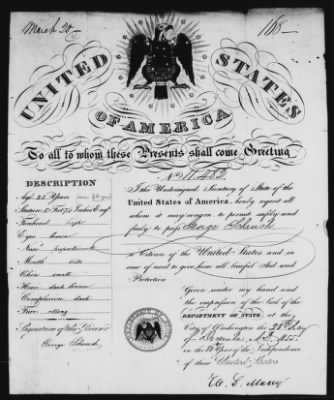 March 20
168
UNITED STATES
OF AMERICA
To all to whom these Presents shall come Greeting
No 11.482
DESCRIPTION
Age 25 Years
Stature 5 Feet 7½ Inches Engl
Forehead high
Eyes brown
Nose proportionate
Mouth
Chin small
Hair dark brown
Complexion dark
Face oblong
Signature of the Bearer
George Schenck
I the Undersigned Secretary of State of the
United States of America, hereby request all
whom it may concern to permit safely and
freely to pass George Schenck
a Citizen of the United States and in
case of need to give him all lawful Aid and
Protection
Given under my hand and
the impression of the Seal of the
DEPARTMENT OF STATE, at the
City of Washington the 28th day
of A.D. 185
in the Year of the Independence
of these United States
W. L. Marcy